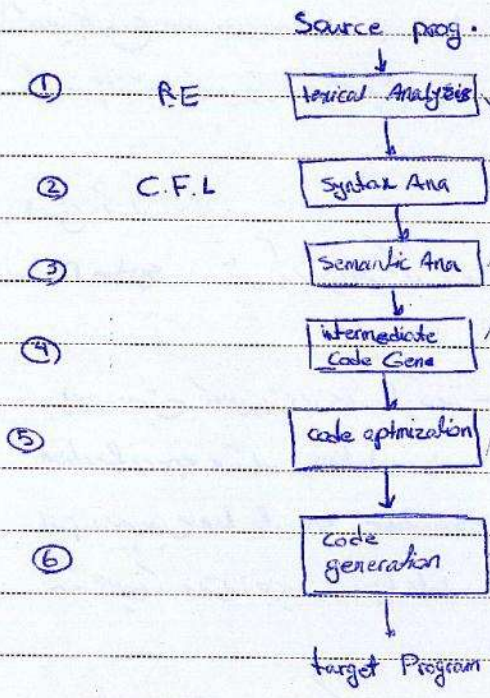 Source prog.
① RE Lexical Analysis
② C.F.L Syntax Ana
③ Semantic Ana
④ intermediate
Code Gene
⑤ code optmization
⑥ code
generation
target Program